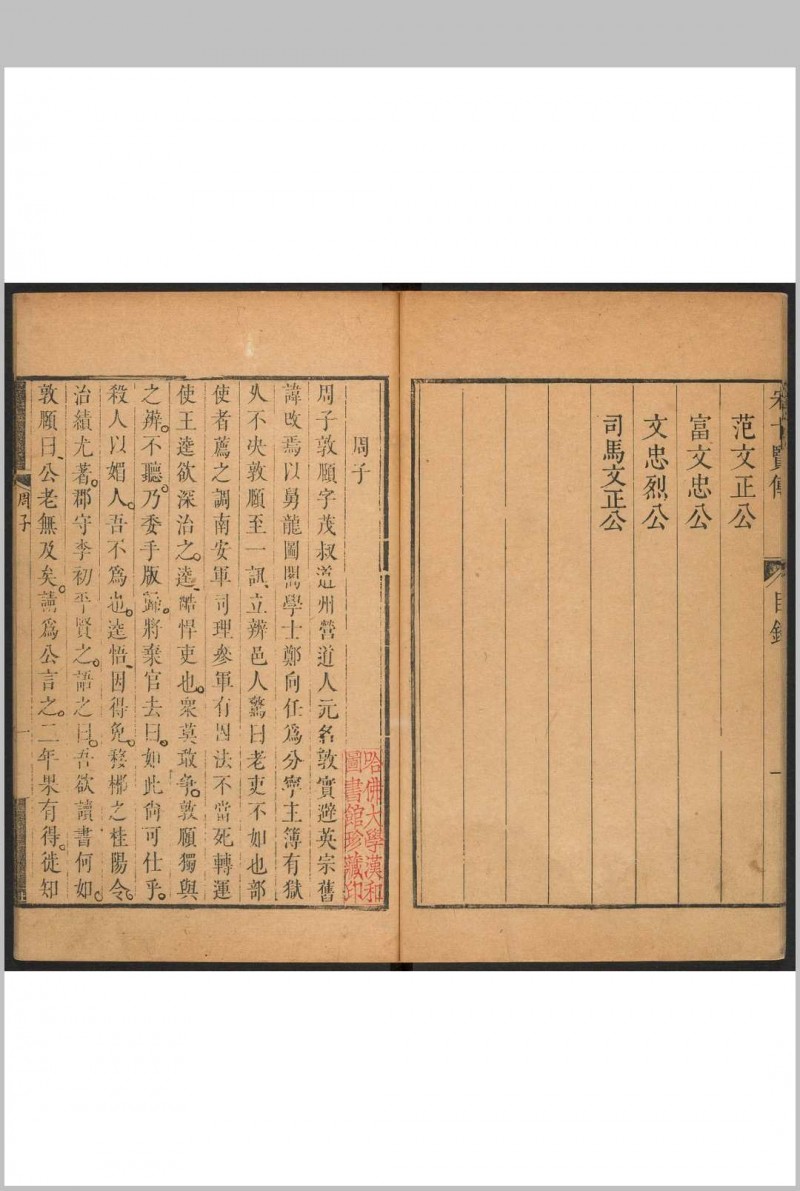 宋十賢傳
目錄
一
范文正公
富文忠公
文忠烈公
司馬文正公
哈佛大學漢和
圖書館珍藏印
周子
周子敦頤字茂叔道州營道人元名敦實避英宗舊
諱改焉以舅龍圖閣學士鄭向任爲分寧主簿有獄
久不决敦頤至一訊立辨邑人驚曰老吏不如也部
使者薦之調南安軍司理參軍有囚法不當死轉運
使王逵欲深治之。逵、酷悍吏也。衆莫敢爭。敦頤獨與
之辨。不聽。乃委手版歸。將棄官去曰。如此尙可仕乎。
殺人以媚人。吾不爲也。逵悟、因得免。移郴之桂陽令。
治績尤著。郡守李初平賢之。語之曰。吾欲讀書何如。
敦頤曰、公老無及矣。請爲公言之。二年果有得。徙知
周子
一